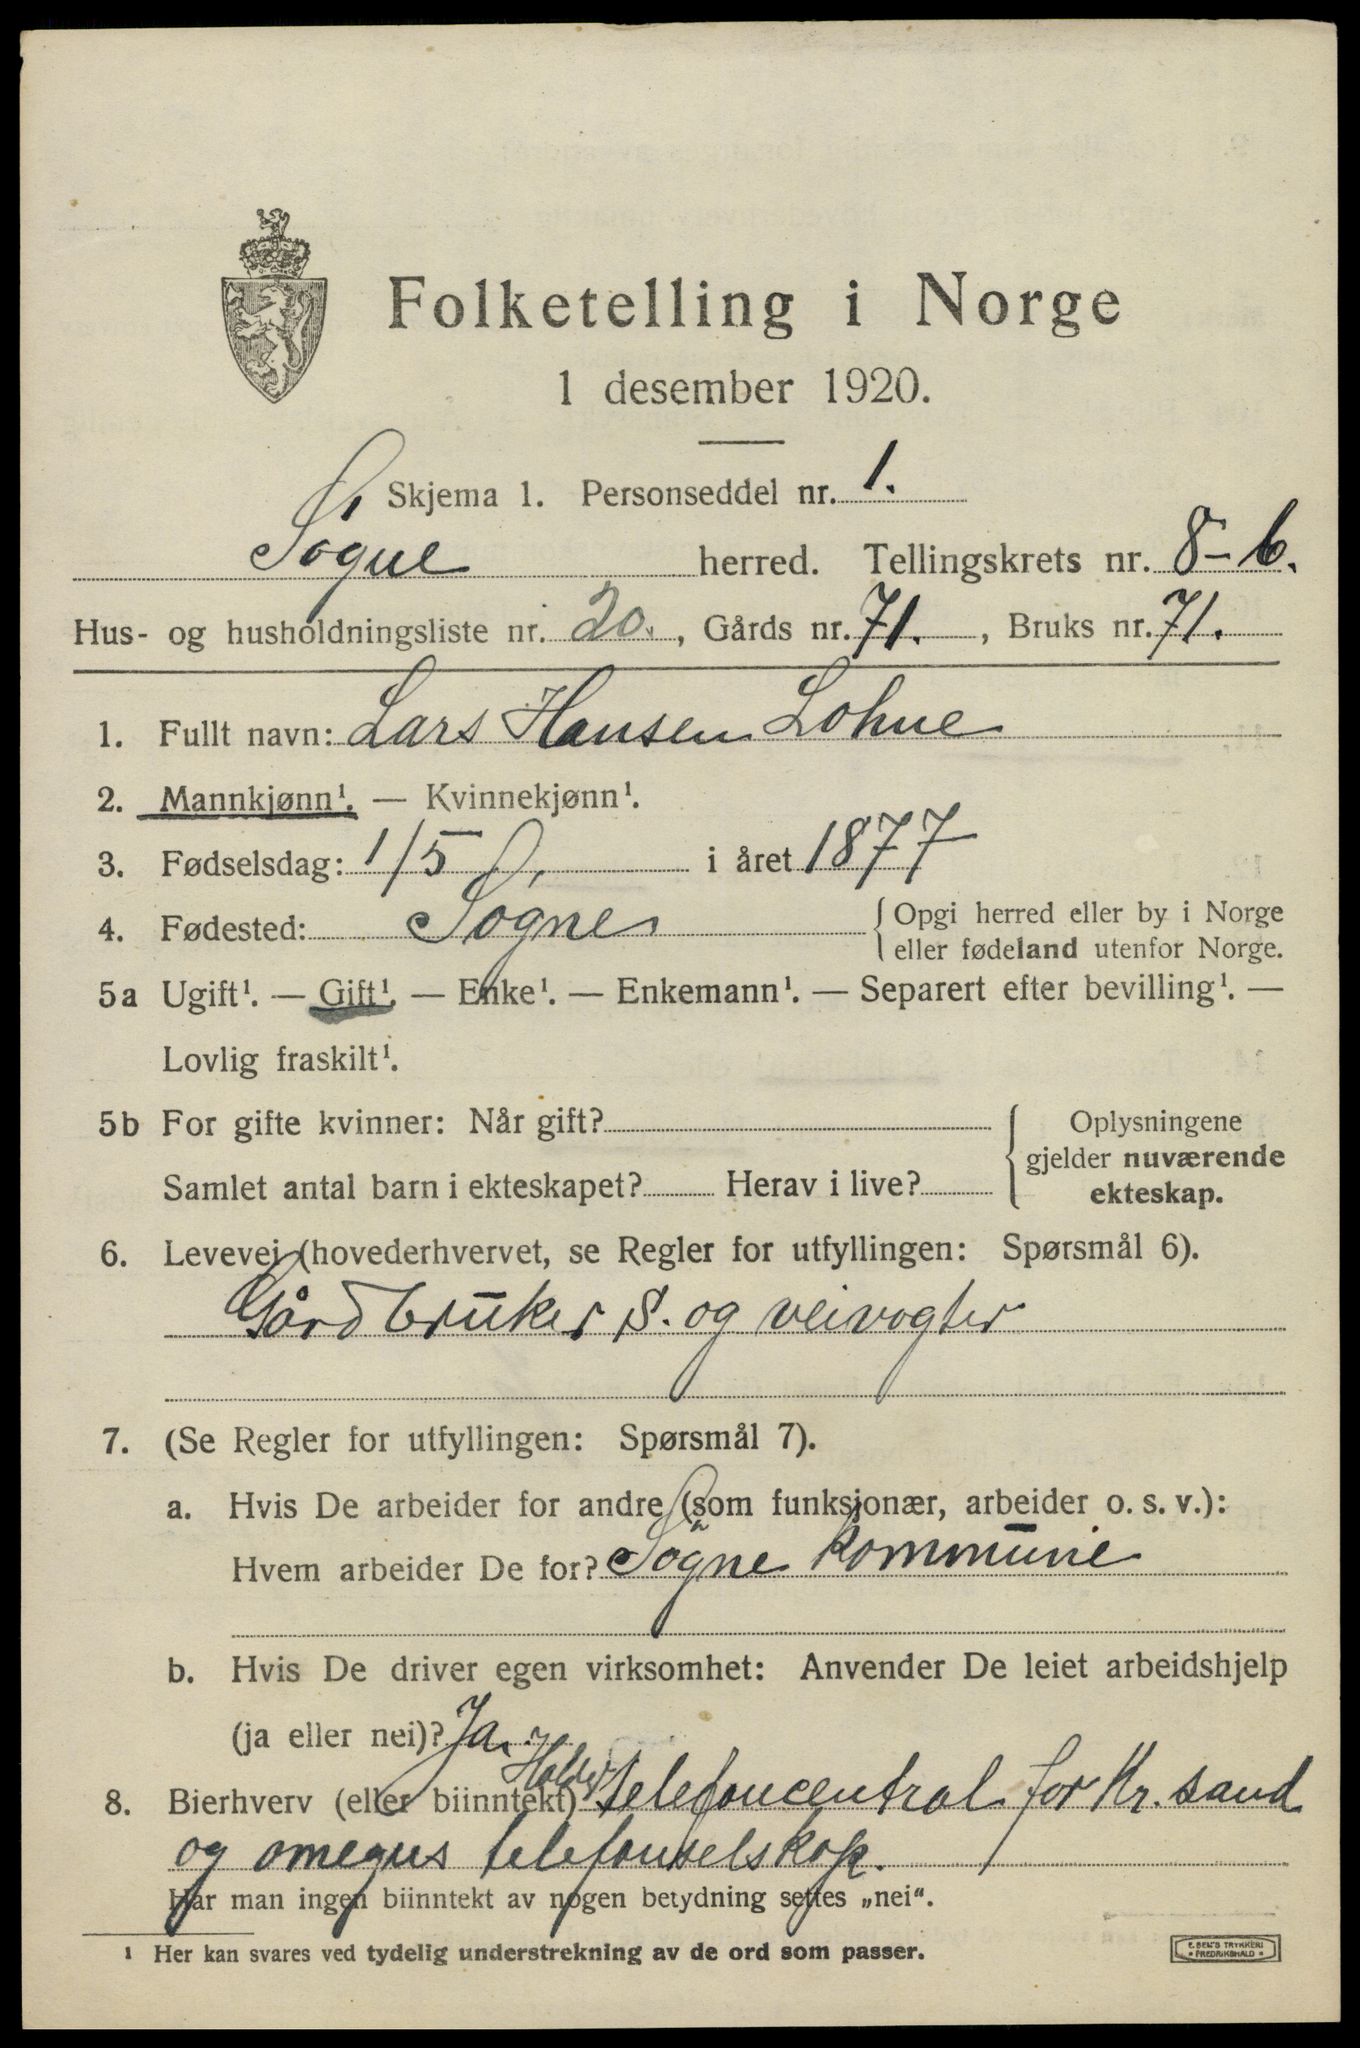 Folketelling i Norge
1 desember 1920.
Skjema 1. Personseddel nr. 1.
Søgne herred. Tellingskrets nr. 8-6.
Hus- og husholdningsliste nr. 20., Gårds nr. 71., Bruks nr. 71.
1. Fullt navn: Lars Hansen Lohne
2. Mannkjønn¹. — Kvinnekjønn¹.
3. Fødselsdag: 1/5 i året 1877
4. Fødested: Søgne { Opgi herred eller by i Norge
eller fødeland utenfor Norge.
5a Ugift¹. — Gift¹. — Enke¹. — Enkemann¹. — Separert efter bevilling¹. —
Lovlig fraskilt¹.
5b For gifte kvinner: Når gift? { Oplysningene
gjelder nuværende
Samlet antal barn i ekteskapet? Herav i live? ekteskap.
6. Levevei (hovederhvervet, se Regler for utfyllingen: Spørsmål 6).
Gårdbruker S. og veivogter
7. (Se Regler for utfyllingen: Spørsmål 7).
a. Hvis De arbeider for andre (som funksjonær, arbeider o. s. v.):
Hvem arbeider De for? Søgne kommune
b. Hvis De driver egen virksomhet: Anvender De leiet arbeidshjelp
(ja eller nei)? Ja.
8. Bierhverv (eller biinntekt) Holder telefoncentral for Kr. sand
og omegns telefonselskap.
Har man ingen biinntekt av nogen betydning settes „nei“.
¹ Her kan svares ved tydelig understrekning av de ord som passer.
E. SEM'S TRYKKERI
FREDRIKSHALD